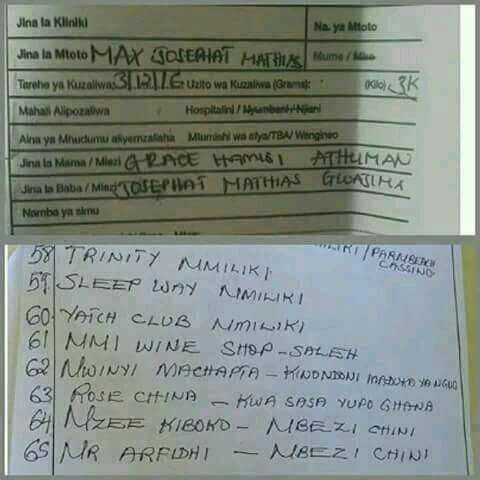 Jina la Kliniki
Na. ya Mtoto
Jina la Mtoto MAX JOSEPHAT MATHIAS Mume / Mke
Tarehe ya Kuzaliwa: 3/12/16 Uzito wa Kuzaliwa (Grams): (Kilo) 3K
Mahali Alipozaliwa Hospitalini / Nyumbani / Njiani
Aina ya Mhudumu aliyemzalisha Mtumishi wa afya/TBA/ Wengineo
Jina la Mama / Mlezi GRACE HAMISI ATHUMAN
Jina la Baba / Mlezi JOSEPHAT MATHIAS GWAJIMA
Namba ya simu
58 TRINITY MMILIKI
CASSINO
59 SLEEP WAY MMILIKI
60 YATCH CLUB MMILIKI
61 MMI WINE SHOP - SALEH
62 MWINYI MACHAPTA - KINONDONI MADUKA YA NGUO
63 ROSE CHINA - KWA SASA YUPO GHANA
64 MZEE KIBOKO - MBEZI CHINI
65 MR ARFIDHI - MBEZI CHINI